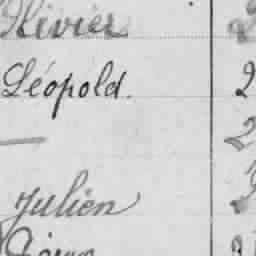 Olivier
Léopold. 2
— 2
Julien